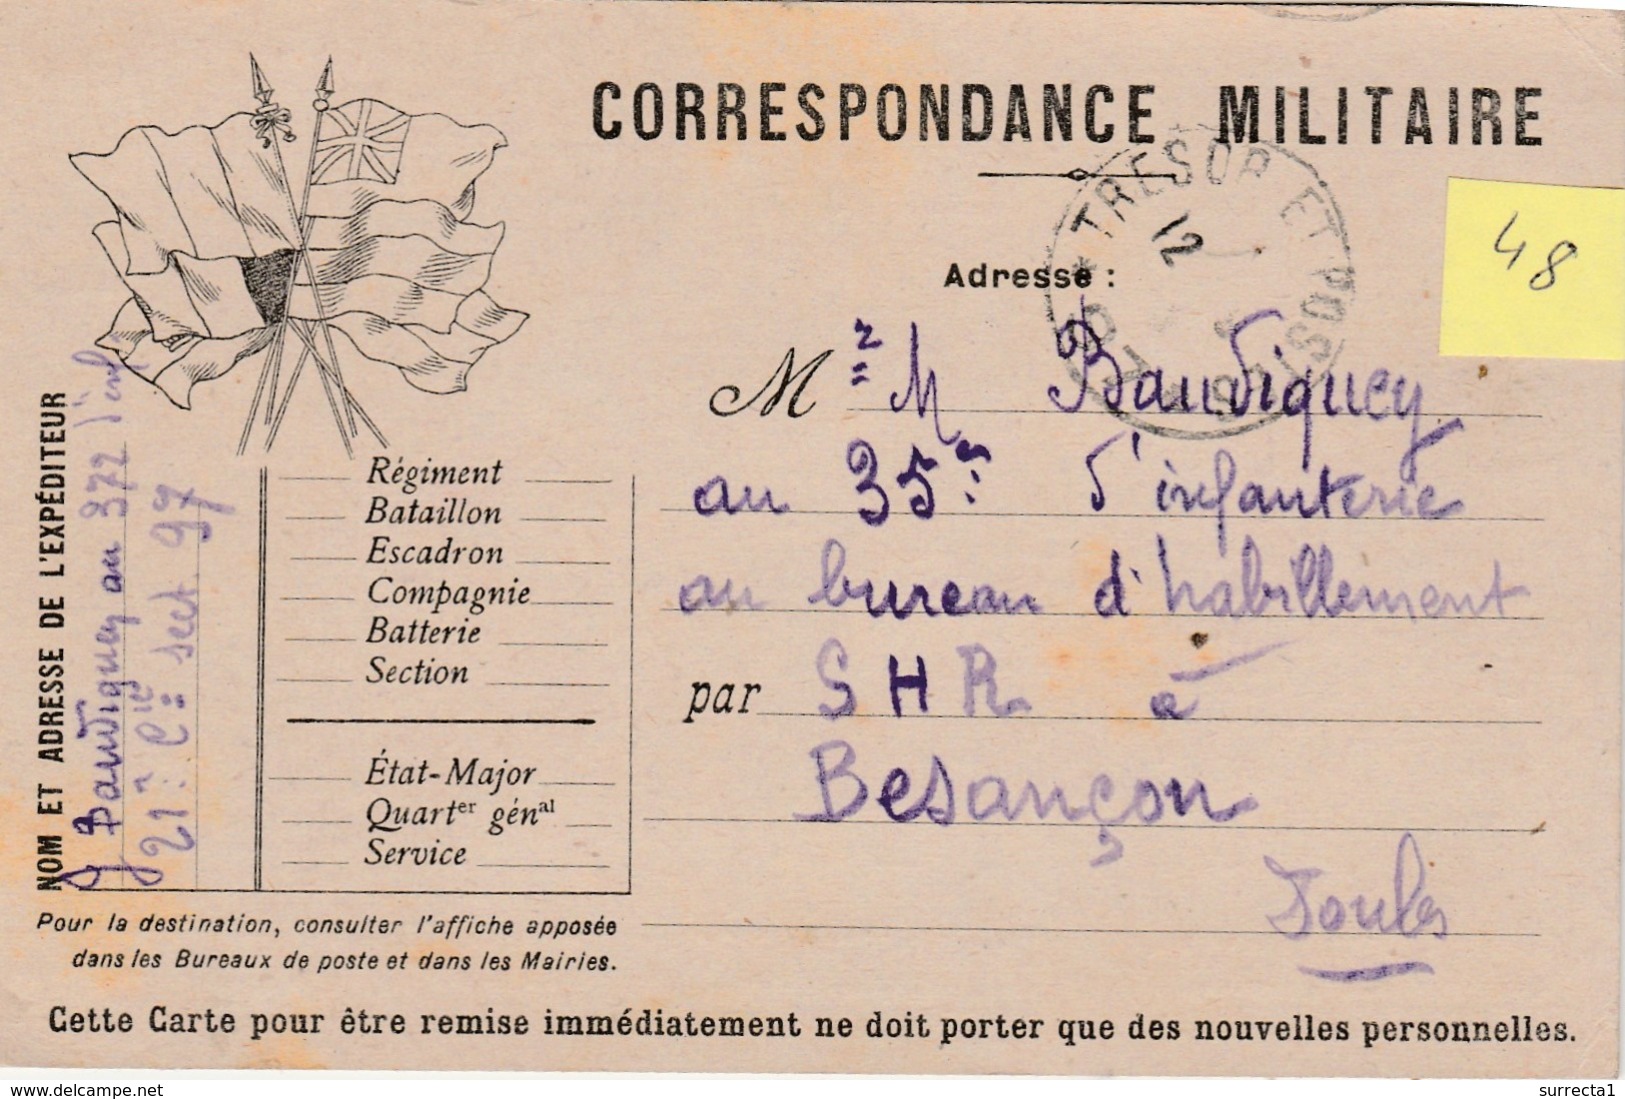 CORRESPONDANCE MILITAIRE
TRESOR ET POSTES
12
48
Adresse :
Mr M Baudiquey
au 35e d'infanterie
au bureau d'habillement
par S H R à
Besançon
Doubs
NOM ET ADRESSE DE L'EXPÉDITEUR
J Baudiquey au 372 d'inf
21e Cie sect 97
Régiment
Bataillon
Escadron
Compagnie
Batterie
Section
État-Major
Quartier génal
Service
Pour la destination, consulter l'affiche apposée
dans les Bureaux de poste et dans les Mairies.
Cette Carte pour être remise immédiatement ne doit porter que des nouvelles personnelles.
delcampe.net
surrecta1